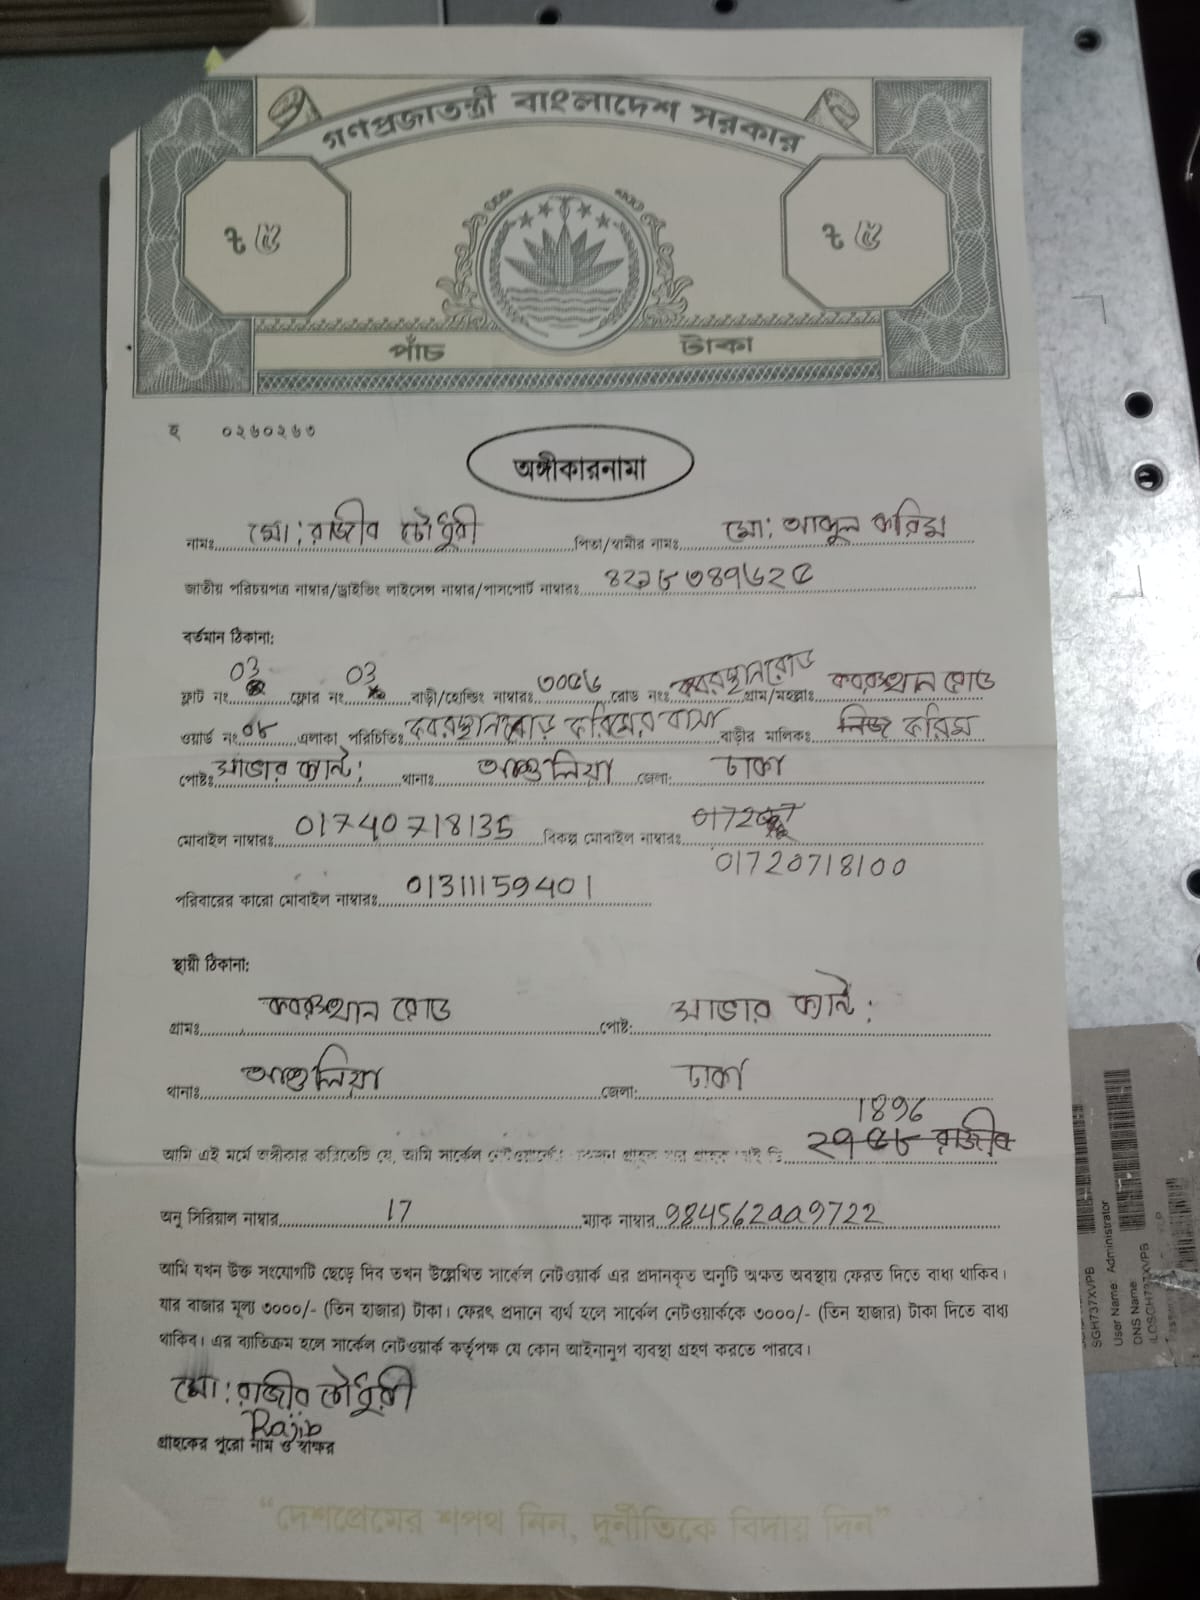 গণপ্রজাতন্ত্রী বাংলাদেশ সরকার
৳ ৫ ৳ ৫
পাঁচ টাকা
হ ০২৬০২৬৩
অঙ্গীকারনামা
নামঃ মো: রাজীব চৌধুরী পিতা/স্বামীর নামঃ মো: আব্দুল করিম
জাতীয় পরিচয়পত্র নাম্বার/ড্রাইভিং লাইসেন্স নাম্বার/পাসপোর্ট নাম্বারঃ
বর্তমান ঠিকানা:
ফ্লাট নং 03 ফ্লোর নং 03 বাড়ী/হোল্ডিং নাম্বারঃ ৩০৫৬ রোড নংঃ কবরস্থান রোড গ্রাম/মহল্লাঃ কবরস্থান রোড
ওয়ার্ড নং ০৮ এলাকা পরিচিতিঃ কবরস্থান রোড করিমের বাসা বাড়ীর মালিকঃ নিজ করিম
পোষ্টঃ সাভার ক্যান্ট: থানাঃ আশুলিয়া জেলা: ঢাকা
মোবাইল নাম্বারঃ 01740718135 বিকল্প মোবাইল নাম্বারঃ
01720718100
পরিবারের কারো মোবাইল নাম্বারঃ 01311159401
স্থায়ী ঠিকানা:
গ্রামঃ কবরস্থান রোড পোষ্ট: সাভার ক্যান্ট:
থানাঃ আশুলিয়া জেলা: ঢাকা
1896
আমি এই মর্মে অঙ্গীকার করিতেছি যে, আমি সার্কেল নেটওয়ার্কের গ্রাহক যার গ্রাহক আই ডি রাজীব
অনু সিরিয়াল নাম্বার 17 ম্যাক নাম্বার 984562aa9722
আমি যখন উক্ত সংযোগটি ছেড়ে দিব তখন উল্লেখিত সার্কেল নেটওয়ার্ক এর প্রদানকৃত অনুটি অক্ষত অবস্থায় ফেরত দিতে বাধ্য থাকিব।
যার বাজার মূল্য ৩০০০/- (তিন হাজার) টাকা। ফেরৎ প্রদানে ব্যর্থ হলে সার্কেল নেটওয়ার্ককে ৩০০০/- (তিন হাজার) টাকা দিতে বাধ্য
থাকিব। এর ব্যতিক্রম হলে সার্কেল নেটওয়ার্ক কর্তৃপক্ষ যে কোন আইনানুগ ব্যবস্থা গ্রহণ করতে পারবে।
মো: রাজীব চৌধুরী
Rajib
গ্রাহকের পুরো নাম ও স্বাক্ষর
“দেশপ্রেমের শপথ নিন, দুর্নীতিকে বিদায় দিন”
SGH737XVPB
User Name: Administrator
DNS Name:
ILOSGH737XVPB